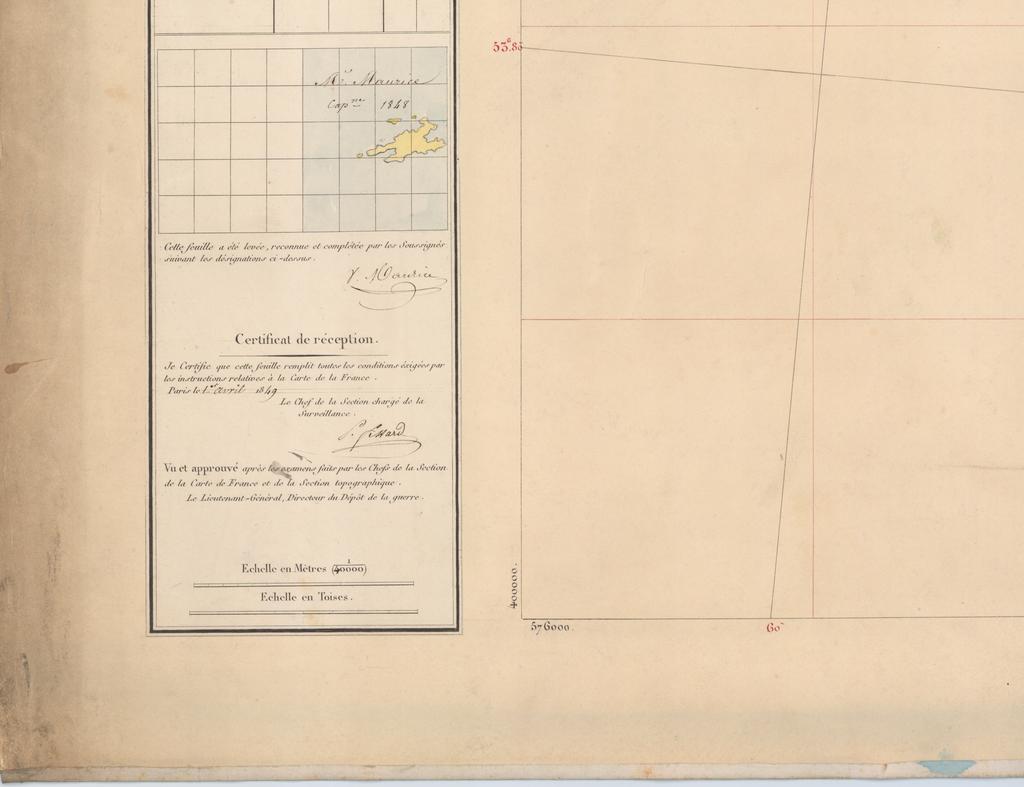 Mr. Maurice
Capne 1848
Cette feuille a été levée, reconnue et complétée par les Soussignés
suivant les désignations ci-dessus.
Maurice
Certificat de réception.
Je Certifie que cette feuille remplit toutes les conditions éxigées par
les instructions relatives à la Carte de la France.
Paris le 1er avril 1849
Le Chef de la Section chargé de la
Surveillance.
Vu et approuvé après les examens faits par les Chefs de la Section
de la Carte de France et de la Section topographique.
Le Lieutenant-Général, Directeur du Dépôt de la guerre.
Echelle en Mètres (1/40000)
Echelle en Toises.
53G.85
400000.
576000.
60`